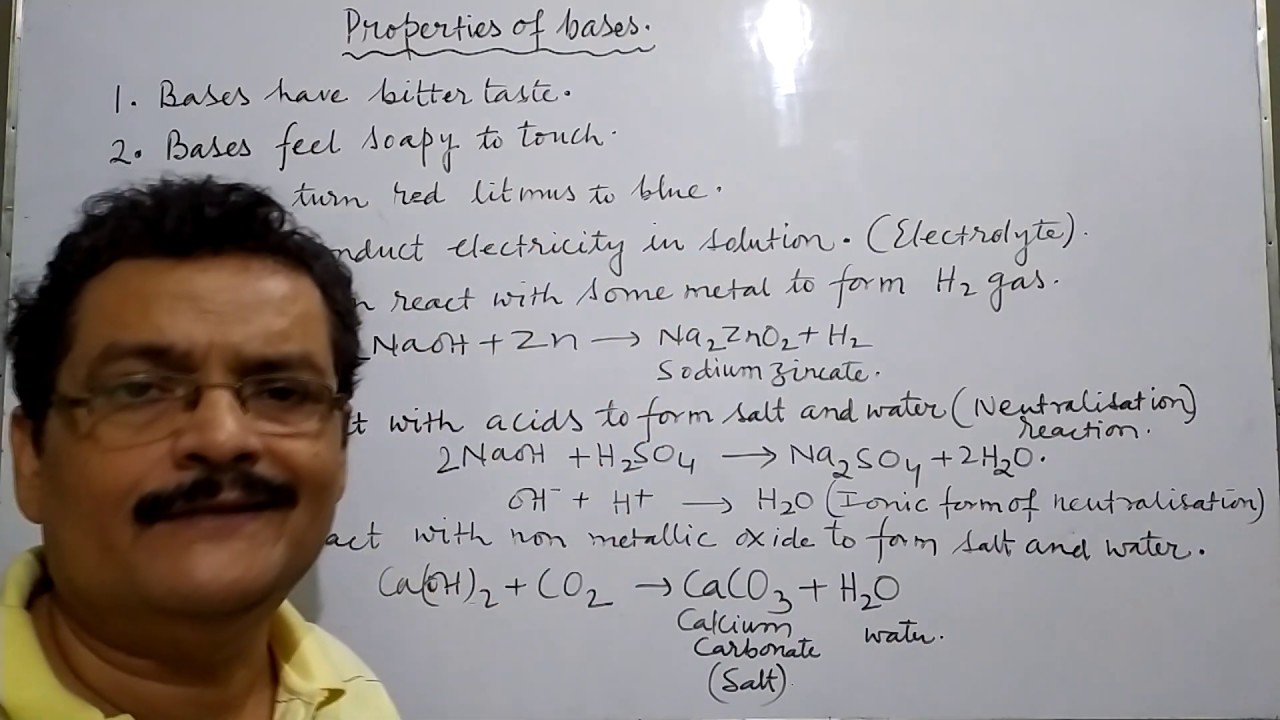 Properties of bases.
1. Bases have bitter taste.
2. Bases feel soapy to touch.
turn red litmus to blue.
nduct electricity in solution. (Electrolyte).
n react with some metal to form H₂ gas.
NaOH + Zn → Na₂ZnO₂ + H₂
Sodium zincate.
t with acids to form salt and water (Neutralisation)
reaction.
2NaOH + H₂SO₄ → Na₂SO₄ + 2H₂O.
OH⁻ + H⁺ → H₂O (Ionic form of neutralisation)
act with non metallic oxide to form salt and water.
Ca(OH)₂ + CO₂ → CaCO₃ + H₂O
Calcium water.
Carbonate
(Salt).